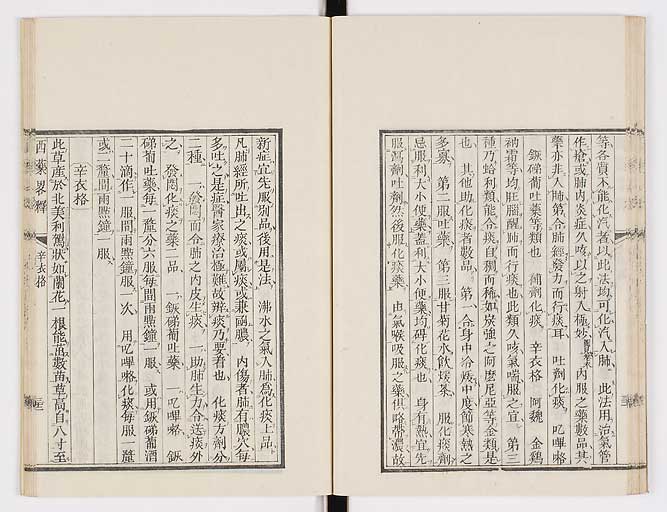 等各質本能化汽者以此法均可化汽入肺 此法用治氣管
作瘡或肺內炎症久咳以之射入極妙 內服之藥數品其
藥亦非入肺第令肺經發力而行痰耳 吐劑化痰 叱嗶咯
鋠硫葡吐藥等類也 補劑化痰 辛衣格 阿魏 金鷄
衲霜等均旺腦醒肺而行痰也此類久咳氣喘服之宜 第三
種乃蛤利類能令痰自稠而稀如炭強之阿麽尼亞等金類是
也 其他助化痰者數品 第一合身中冷疾中度節寒熱之
多寡 第二服吐藥 第三服甘菊花水飲煖茶 服化痰劑
忌服利大小便藥蓋利大小便藥均碍化痰也 身有熱宜先
服瀉劑吐劑然後服化痰藥 由氣喉吸服之藥俱略帶濃故
新症宜先服別品後用是法 沸水之氣入肺為化痰上品
凡肺經所吐出之痰或屬痰或兼頭膿 內傷者肺有膿穴每
多吐之是症醫家療治極難故辨痰乃要着也 化痰方劑分
二種 一發悶而令肺之內皮生痰 一助肺生力令送痰外
之 發悶化痰之藥二品 一鋠硫吐藥 一叱嗶咯 鋠
硫葡吐藥每一釐分六服每間兩點鐘一服 或用鋠硫葡酒
二十滴作一服間兩點鐘服一次 用叱嗶咯化痰每服一釐
或二釐間兩點鐘一服
辛衣格
此草產於北美利駕狀如蘭花一根能茁數苗草高自八寸至
西藥畧釋
辛衣格